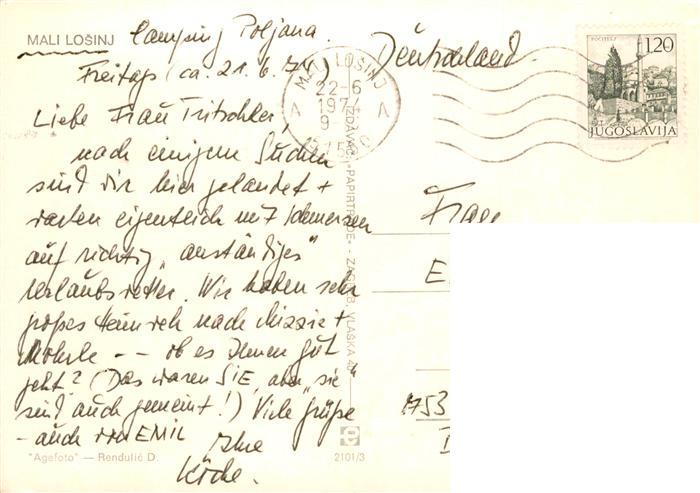 MALI LOŠINJ Camping Poljana
Freitag (ca. 21.6.74)
Liebe Frau Tritschler,
nach einigem Suchen
sind wir hier gelandet +
warten eigentlich mit Schmerzen
auf richtig „anständiges"
Urlaubswetter. Wir haben sehr
großes Heimweh nach Mizzie +
Mohrle -- ob es Ihnen gut
geht? (Das waren SIE, aber „sie"
sind auch gemeint!) Viele Grüße
- auch von EMIL
Ihre
"Agefoto" — Rendulić D.
2101/3
IZDAVAČ: "PAPIRTRADE" - ZAGREB, VLAŠKA
Deutschland
MALI LOŠINJ
22-6
1974
9
A A
POČITELJ
1.20
JUGOSLAVIJA
Frau
E
753